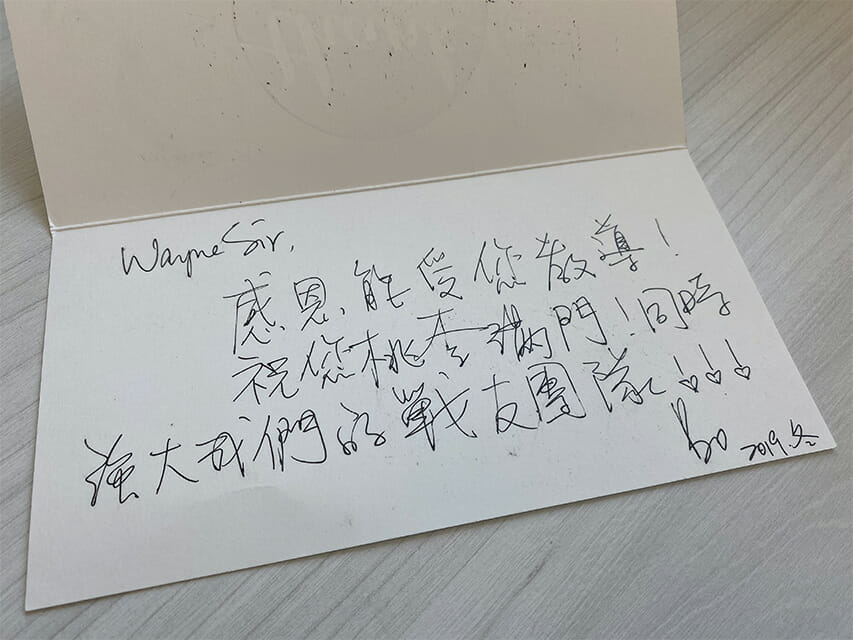 Wayne Sir,
感恩能受您教導！
祝您桃李滿門！同時
強大我們的戰友團隊!!!
Bo 2019.冬